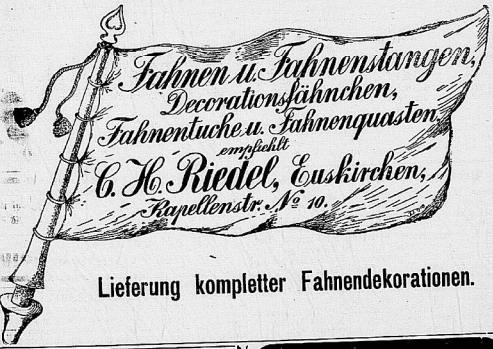 Fahnen u. Fahnenstangen,
Decorationsfähnchen,
Fahnentuche u. Fahnenquasten.
empfiehlt
C. H. Riedel, Euskirchen,
Kapellenstr. No 10.
Lieferung kompletter Fahnendekorationen.